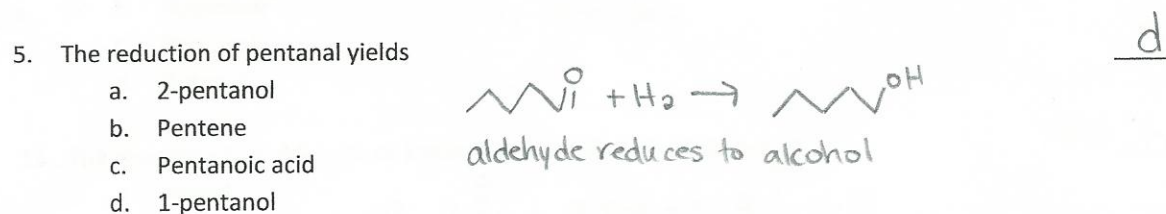 d
5. The reduction of pentanal yields
a. 2-pentanol
b. Pentene
c. Pentanoic acid
d. 1-pentanol
O + H₂ → OH
aldehyde reduces to alcohol